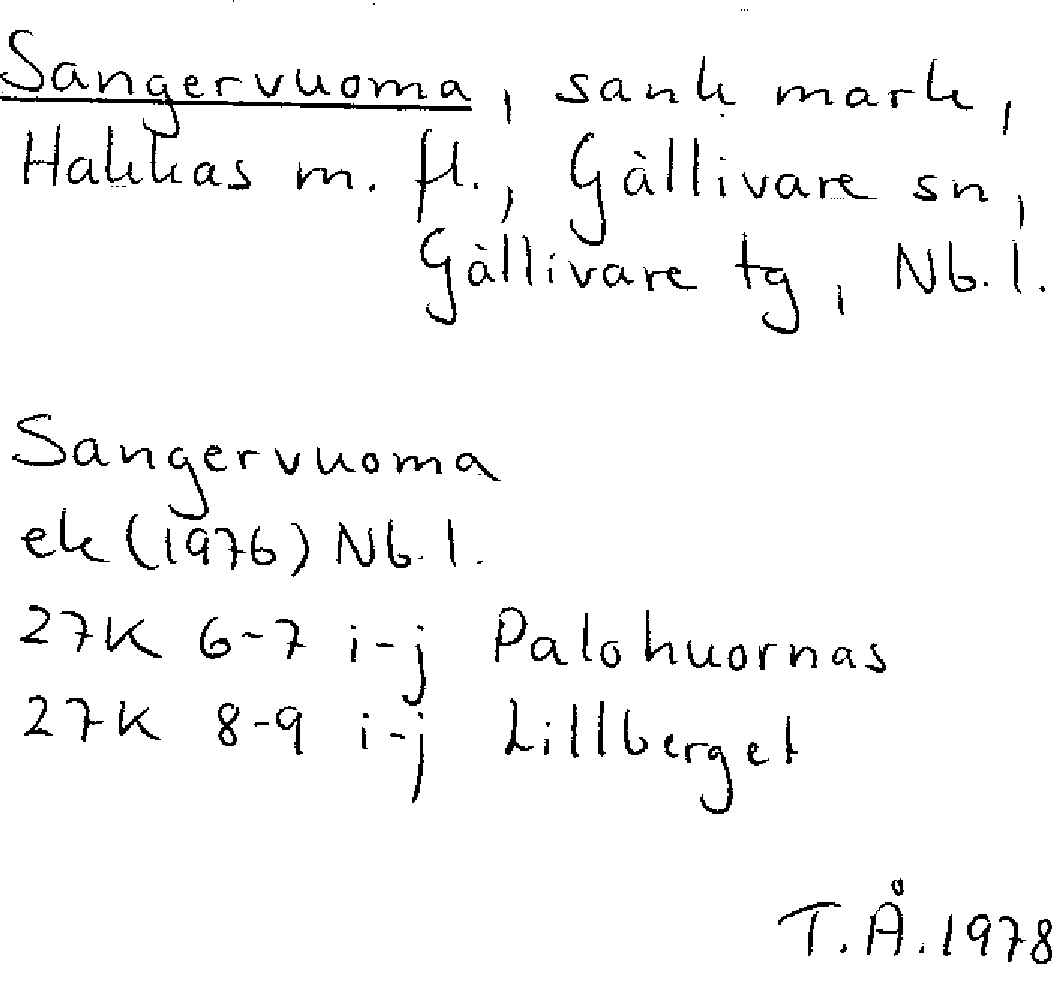 Sangervuoma, sank mark,
Hakkas m. fl., Gällivare sn,
Gällivare tg, Nb. l.
Sangervuoma
ek (1976) Nb. l.
27K 6-7 i-j Palohuornas
27K 8-9 i-j Lillberget
T.Å. 1978